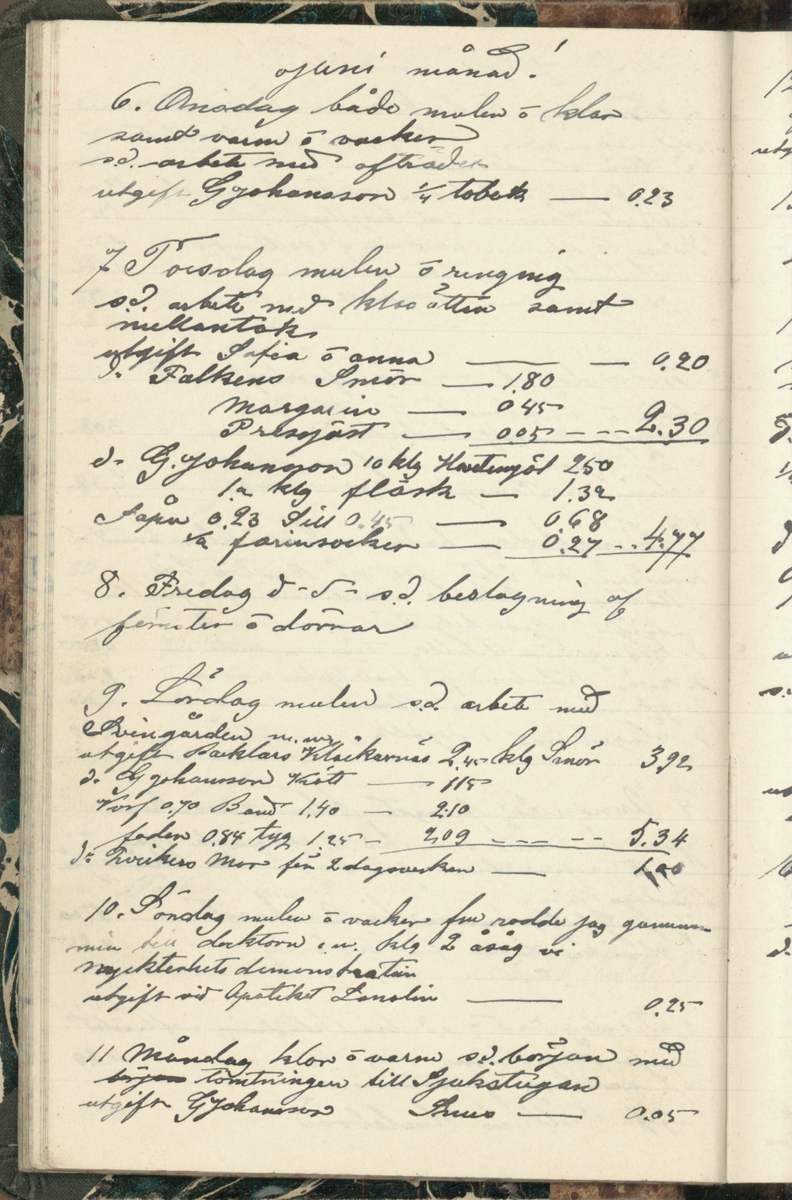 Juni månad!
6. Onsdag både mulen ō klar
samt varm ō vacker
s.d. arbete med afträdet
utgift G Johansson 1/4 tobak — 0.23
7 Torsdag mulen ō regnig
s.d. arbete med samt
mellantak
utgift Sofia ō anna — — 0.20
d. Falkens Smör — 1.80
Margarin — 0.45
Presjäst — 0.05 - - - 2.30
d. G. Johansson 10 klg Hvetemjöl 2.50
klg fläsk — 1.32
Såpa 0.23 Sill 0.45 — 0.68
1/2 farinsocker — 0.27 - - 4.77
8. Fredag d - s - s.d. beslagning af
fenster ō dörrar
9. Lördag mulen s.d. arbete med
Svingården m.m.
utgift Klockarnäs 2.45 klg Smör 3.92
d. G Johansson Kött — 1.15
Korf 0.70 Band 1.40 — 2.10
foder 0.84 tyg 1.25 - 2.09 - - - - 5.34
d: Mor för 2 dagsverken — 1.00
10. Söndag mulen ō vacker fm rodde jag gumman
min till doktorn e.m. klg 2 åsåg vi
nykterhets demonstration
utgift vid Apoteket Lanolin — 0.25
11 Måndag klar ō varm s.d. början med
början tomtningen till Sjukstugan
utgift G Johansson Snus — 0.05